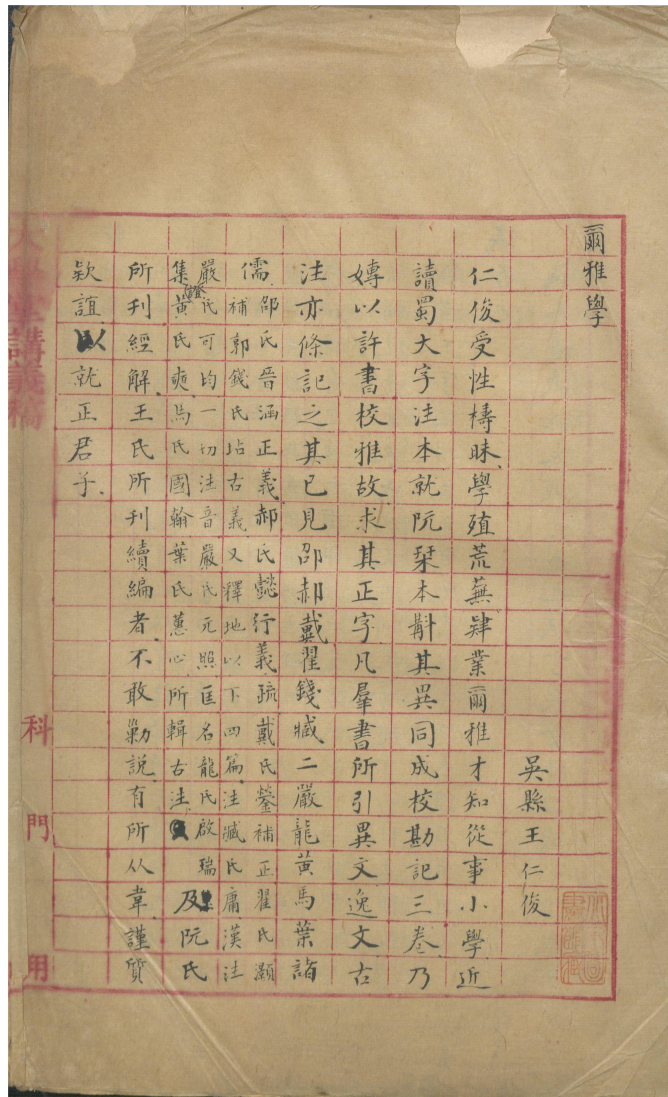 爾雅學
吳縣王仁俊
仁俊受性檮昧學殖荒蕪肄業爾雅才知從事小學近
讀蜀大字注本就阮栞本斠其異同成校勘記三卷乃
嫥以許書校雅故求其正字凡羣書所引異文逸文古
注亦條記之其已見邵郝戴翟錢臧二嚴龍黃馬葉諸
儒
邵氏晉涵正義郝氏懿行義疏戴氏鎣補正翟氏灝
補郭錢氏坫古義又釋地以下四篇注臧氏庸漢注
嚴氏可均一切注音嚴氏元照匡名龍氏啟瑞
集黃氏奭馬氏國翰葉氏蕙心所輯古注
及阮氏
所刊經解王氏所刊續編者不敢勦說有所从韋謹質
欵誼以就正君子
大學堂講義稿
科
門
用